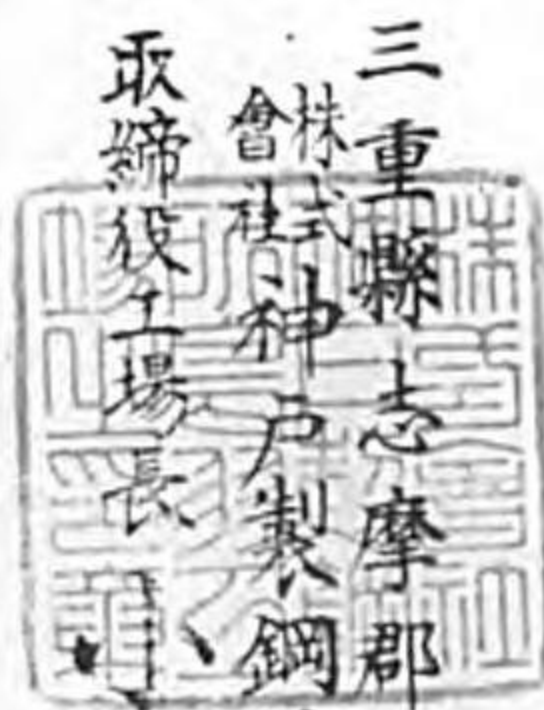 三重縣志摩郡
株式會社神戸製鋼
取締役工場長
株式會社